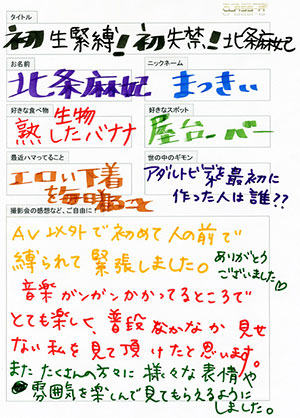 タイトル
初生緊縛!初失禁!北条麻妃
お名前
ニックネーム
北条麻妃
まっきぃ
好きな食べ物
好きなスポット
生物
熟したバナナ
屋台・バー
最近ハマってること
世の中のギモン
エロい下着
を毎日着ること
アダルトビデオを最初に
作った人は誰??
撮影会の感想など、ご自由に!
AV以外で初めて人の前で
縛られて緊張しました。
ありがとう
ございました♡
音楽がンガンかかってるところで
とても楽しく、普段なかなか見せ
ない私を見て頂けたと思います。
また たくさんの方々に 様々な表情や
雰囲気を楽しんで見てもらえるように
しました。